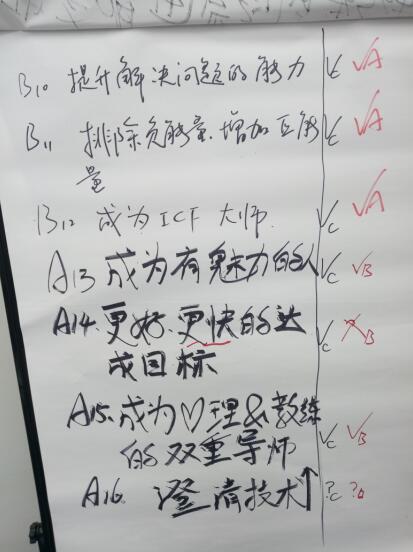 B10 提升解决问题的能力 √c √A
B11 排除负能量.增加正能 √c √A
量
B12 成为ICF大师. √c √A
A13 成为有魅力的人 √c √B
A14.更好.更快的达 √c ×B
成目标
A15.成为♡理&教练
的双重导师 √c √B
A16. 澄清技术↑ ?c ?